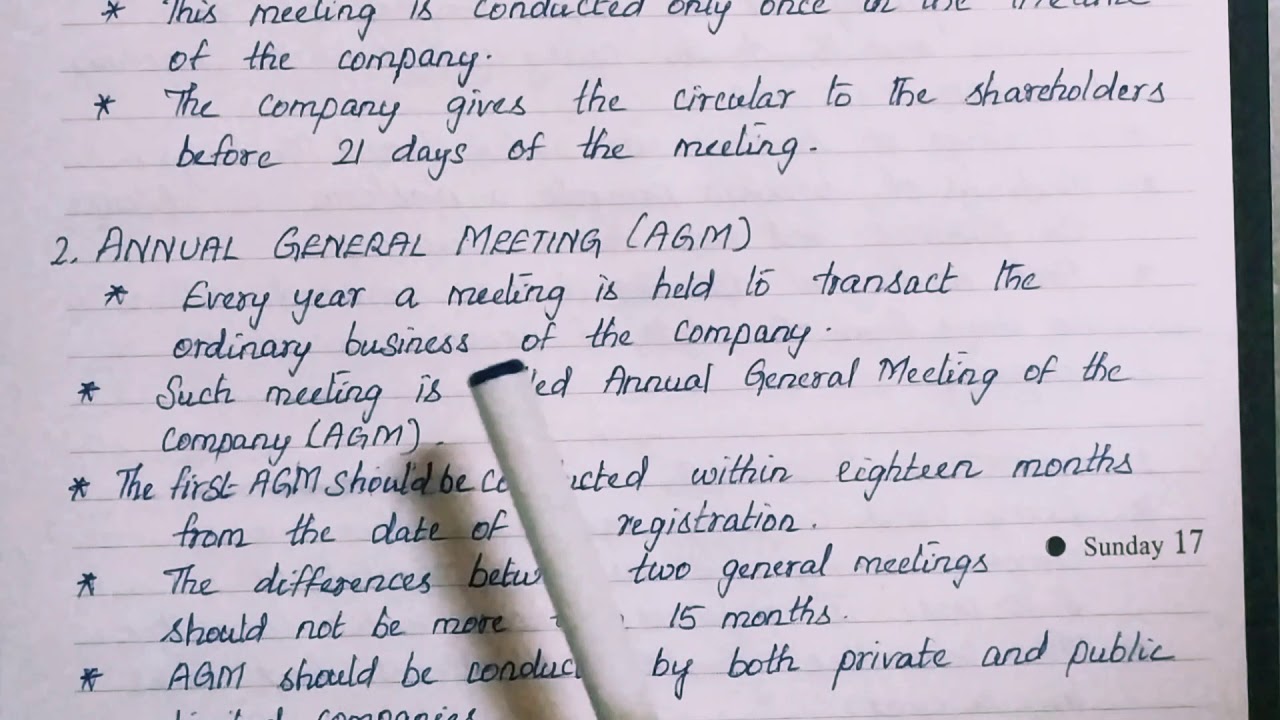 * This meeting is conducted only once in
of the company.
* The company gives the circular to the shareholders
before 21 days of the meeting.
2. ANNUAL GENERAL MEETING (AGM)
* Every year a meeting is held to transact the
ordinary business of the company.
* Such meeting is Annual General Meeting of the
Company (AGM).
* The first AGM should be within eighteen months
from the date of registration.
● Sunday 17
* The differences two general meetings
should not be more 15 months.
* AGM should be by both private and public
companies